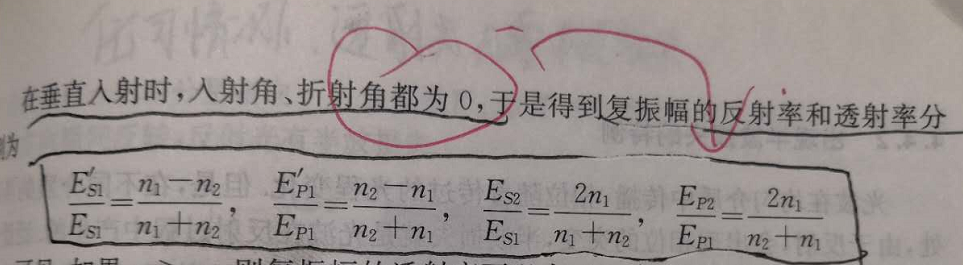 在垂直入射时,入射角、折射角都为 0,于是得到复振幅的反射率和透射率分
为
E′S1/ES1 = (n1−n2)/(n1+n2), E′P1/EP1 = (n2−n1)/(n2+n1), ES2/ES1 = 2n1/(n1+n2), EP2/EP1 = 2n1/(n2+n1)